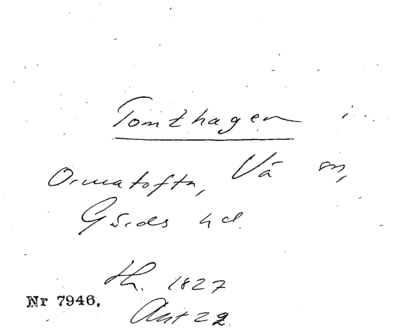 Tomthagen i
Ormatofta, Vä sn,
Gärds hd.
th. 1827
Akt 22
Nr 7946.